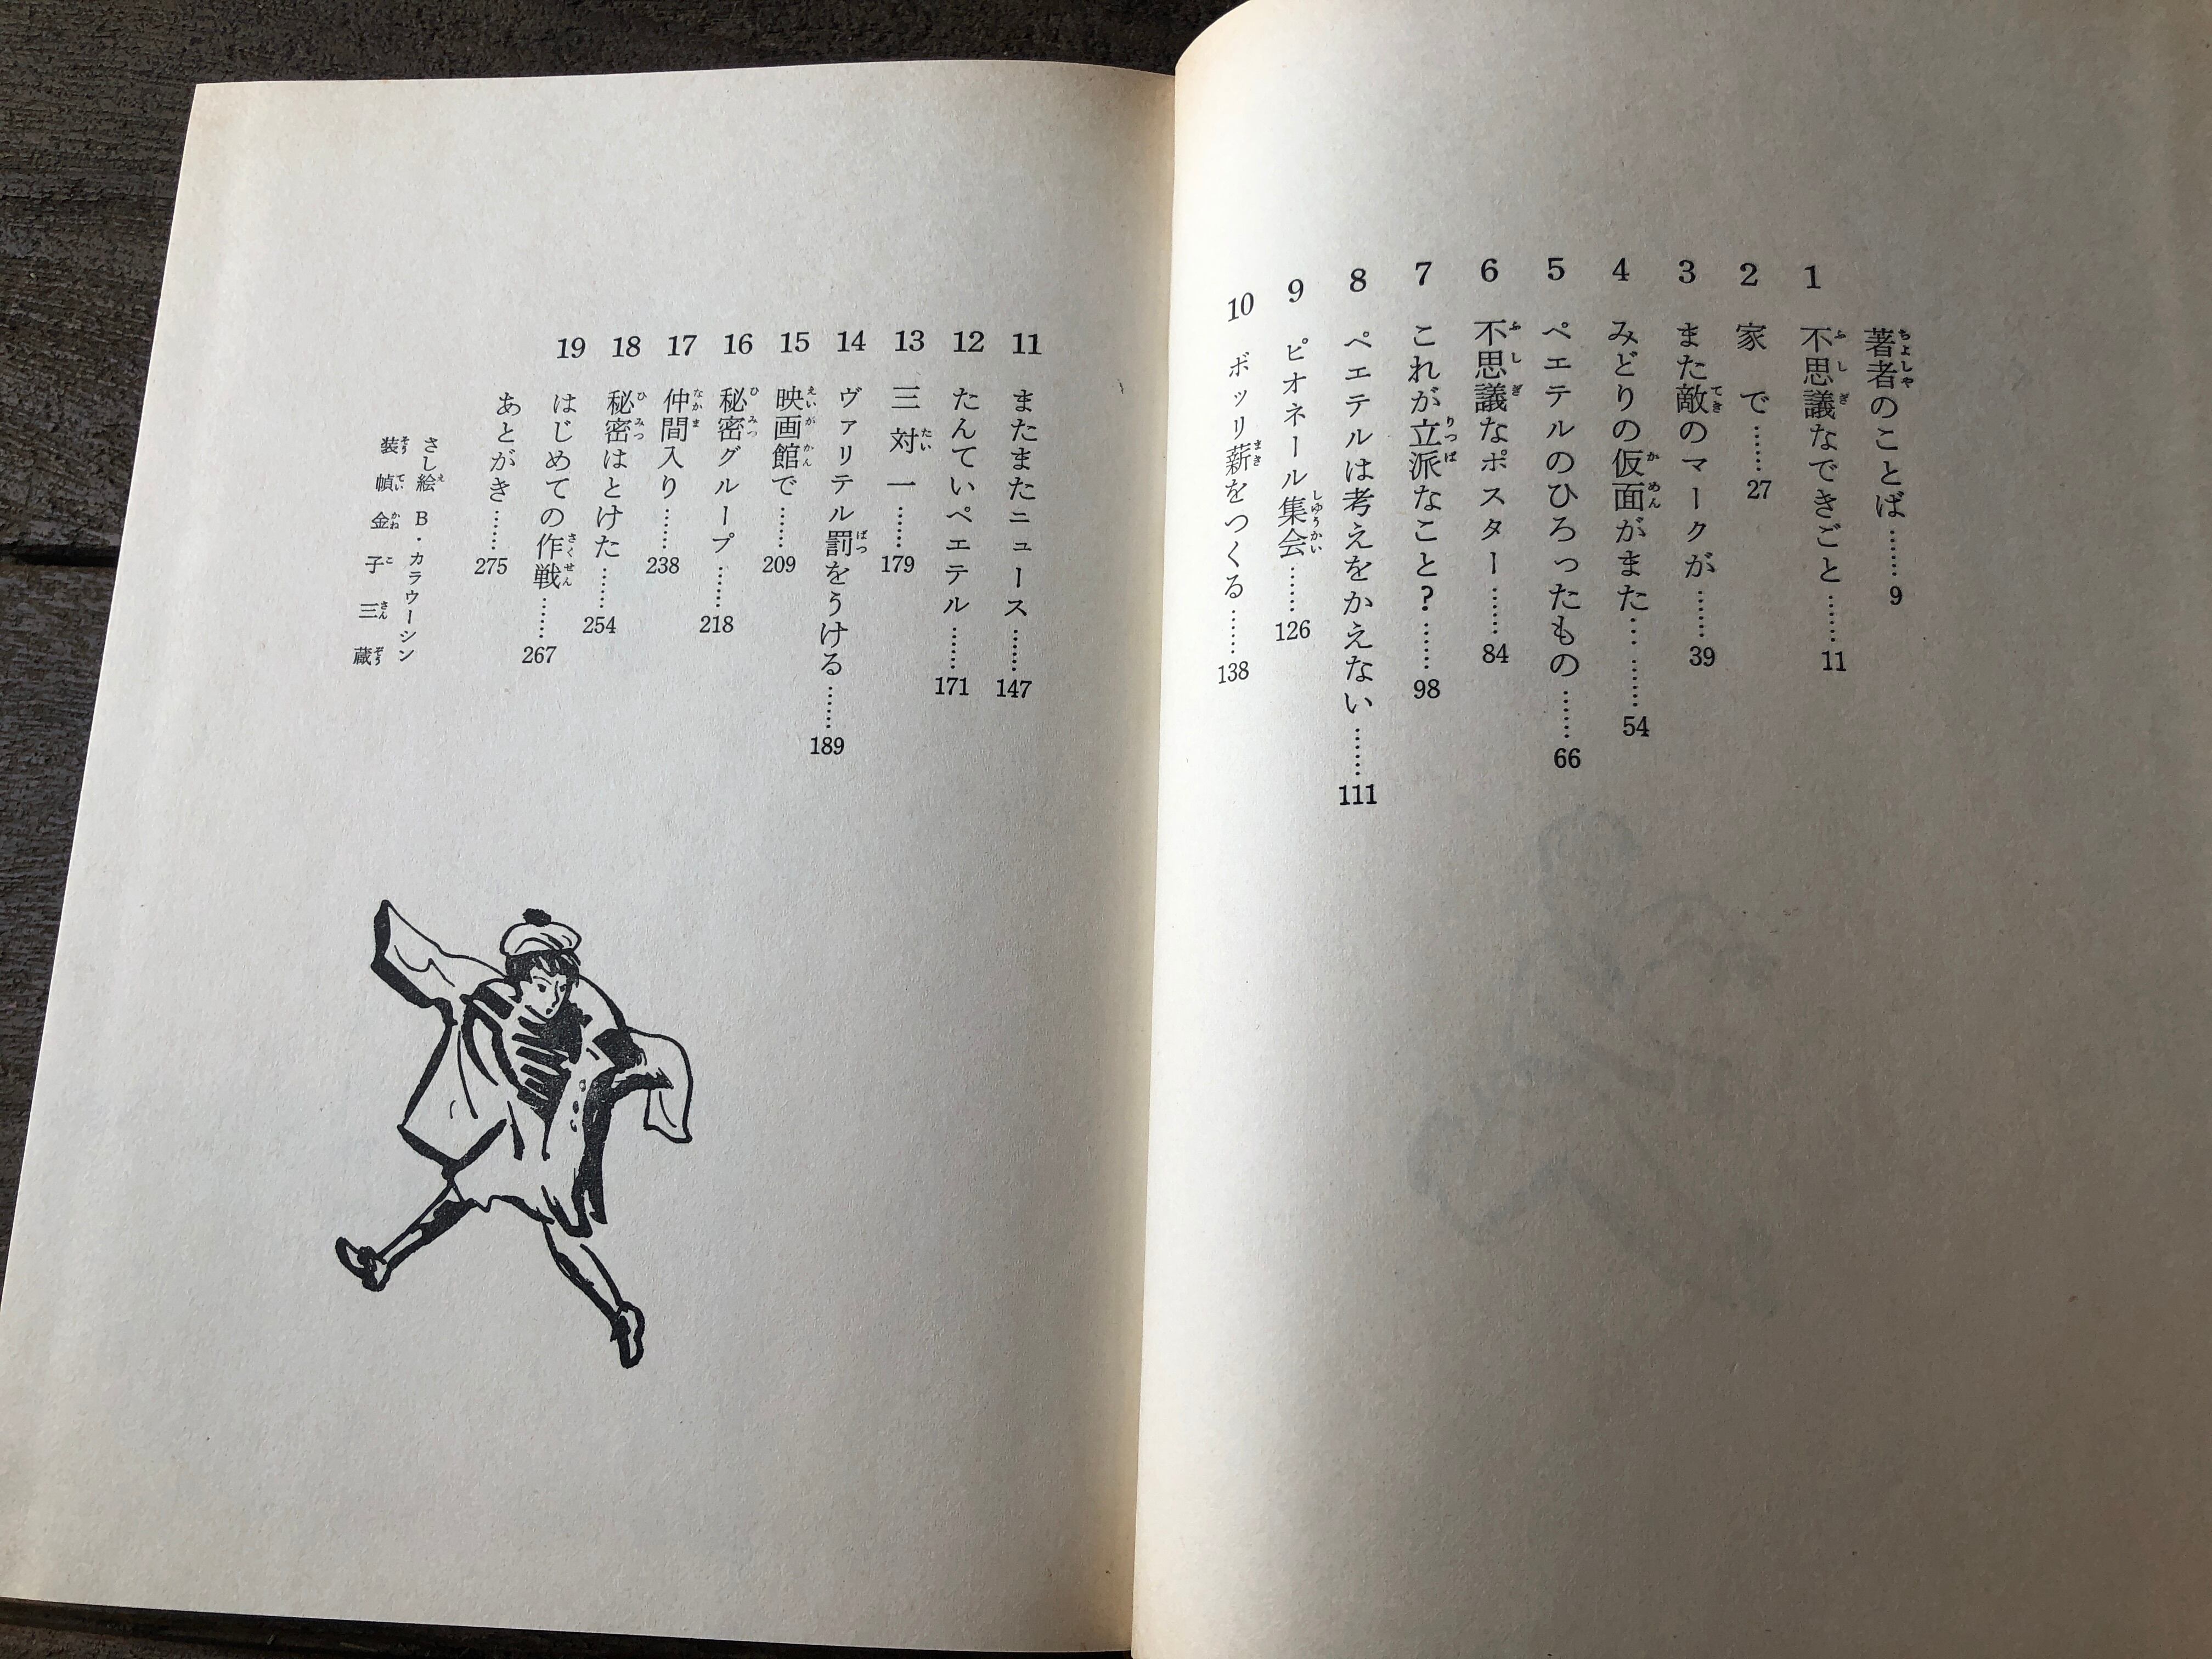 著者のことば……… 9
1 不思議なできごと……… 11
2 家 で……… 27
3 また敵のマークが……… 39
4 みどりの仮面がまた… ……… 54
5 ペエテルのひろったもの……… 66
6 不思議なポスター……… 84
7 これが立派なこと?……… 98
8 ペエテルは考えをかえない……… 111
9 ピオネール集会……… 126
10 ボッリ薪をつくる……… 138
11 またまたニュース……… 147
12 たんていペエテル……… 171
13 三 対 一……… 179
14 ヴァリテル罰をうける……… 189
15 映画館で……… 209
16 秘密グループ……… 218
17 仲間入り……… 238
18 秘密はとけた……… 254
19 はじめての作戦……… 267
あとがき……… 275
さし絵 B・カラウーシン
装 幀 金 子 三 蔵